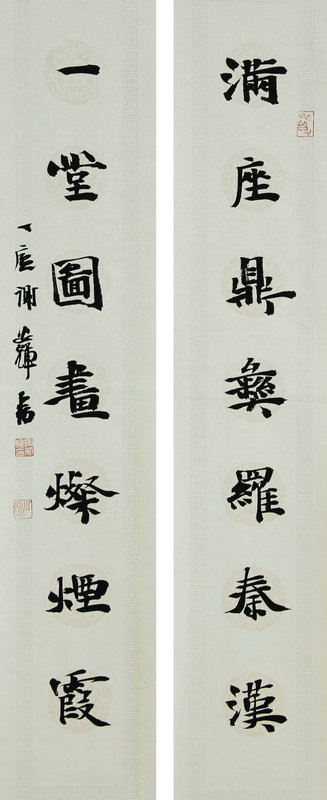 滿座鼎彝羅秦漢
一堂圖畫燦煙霞